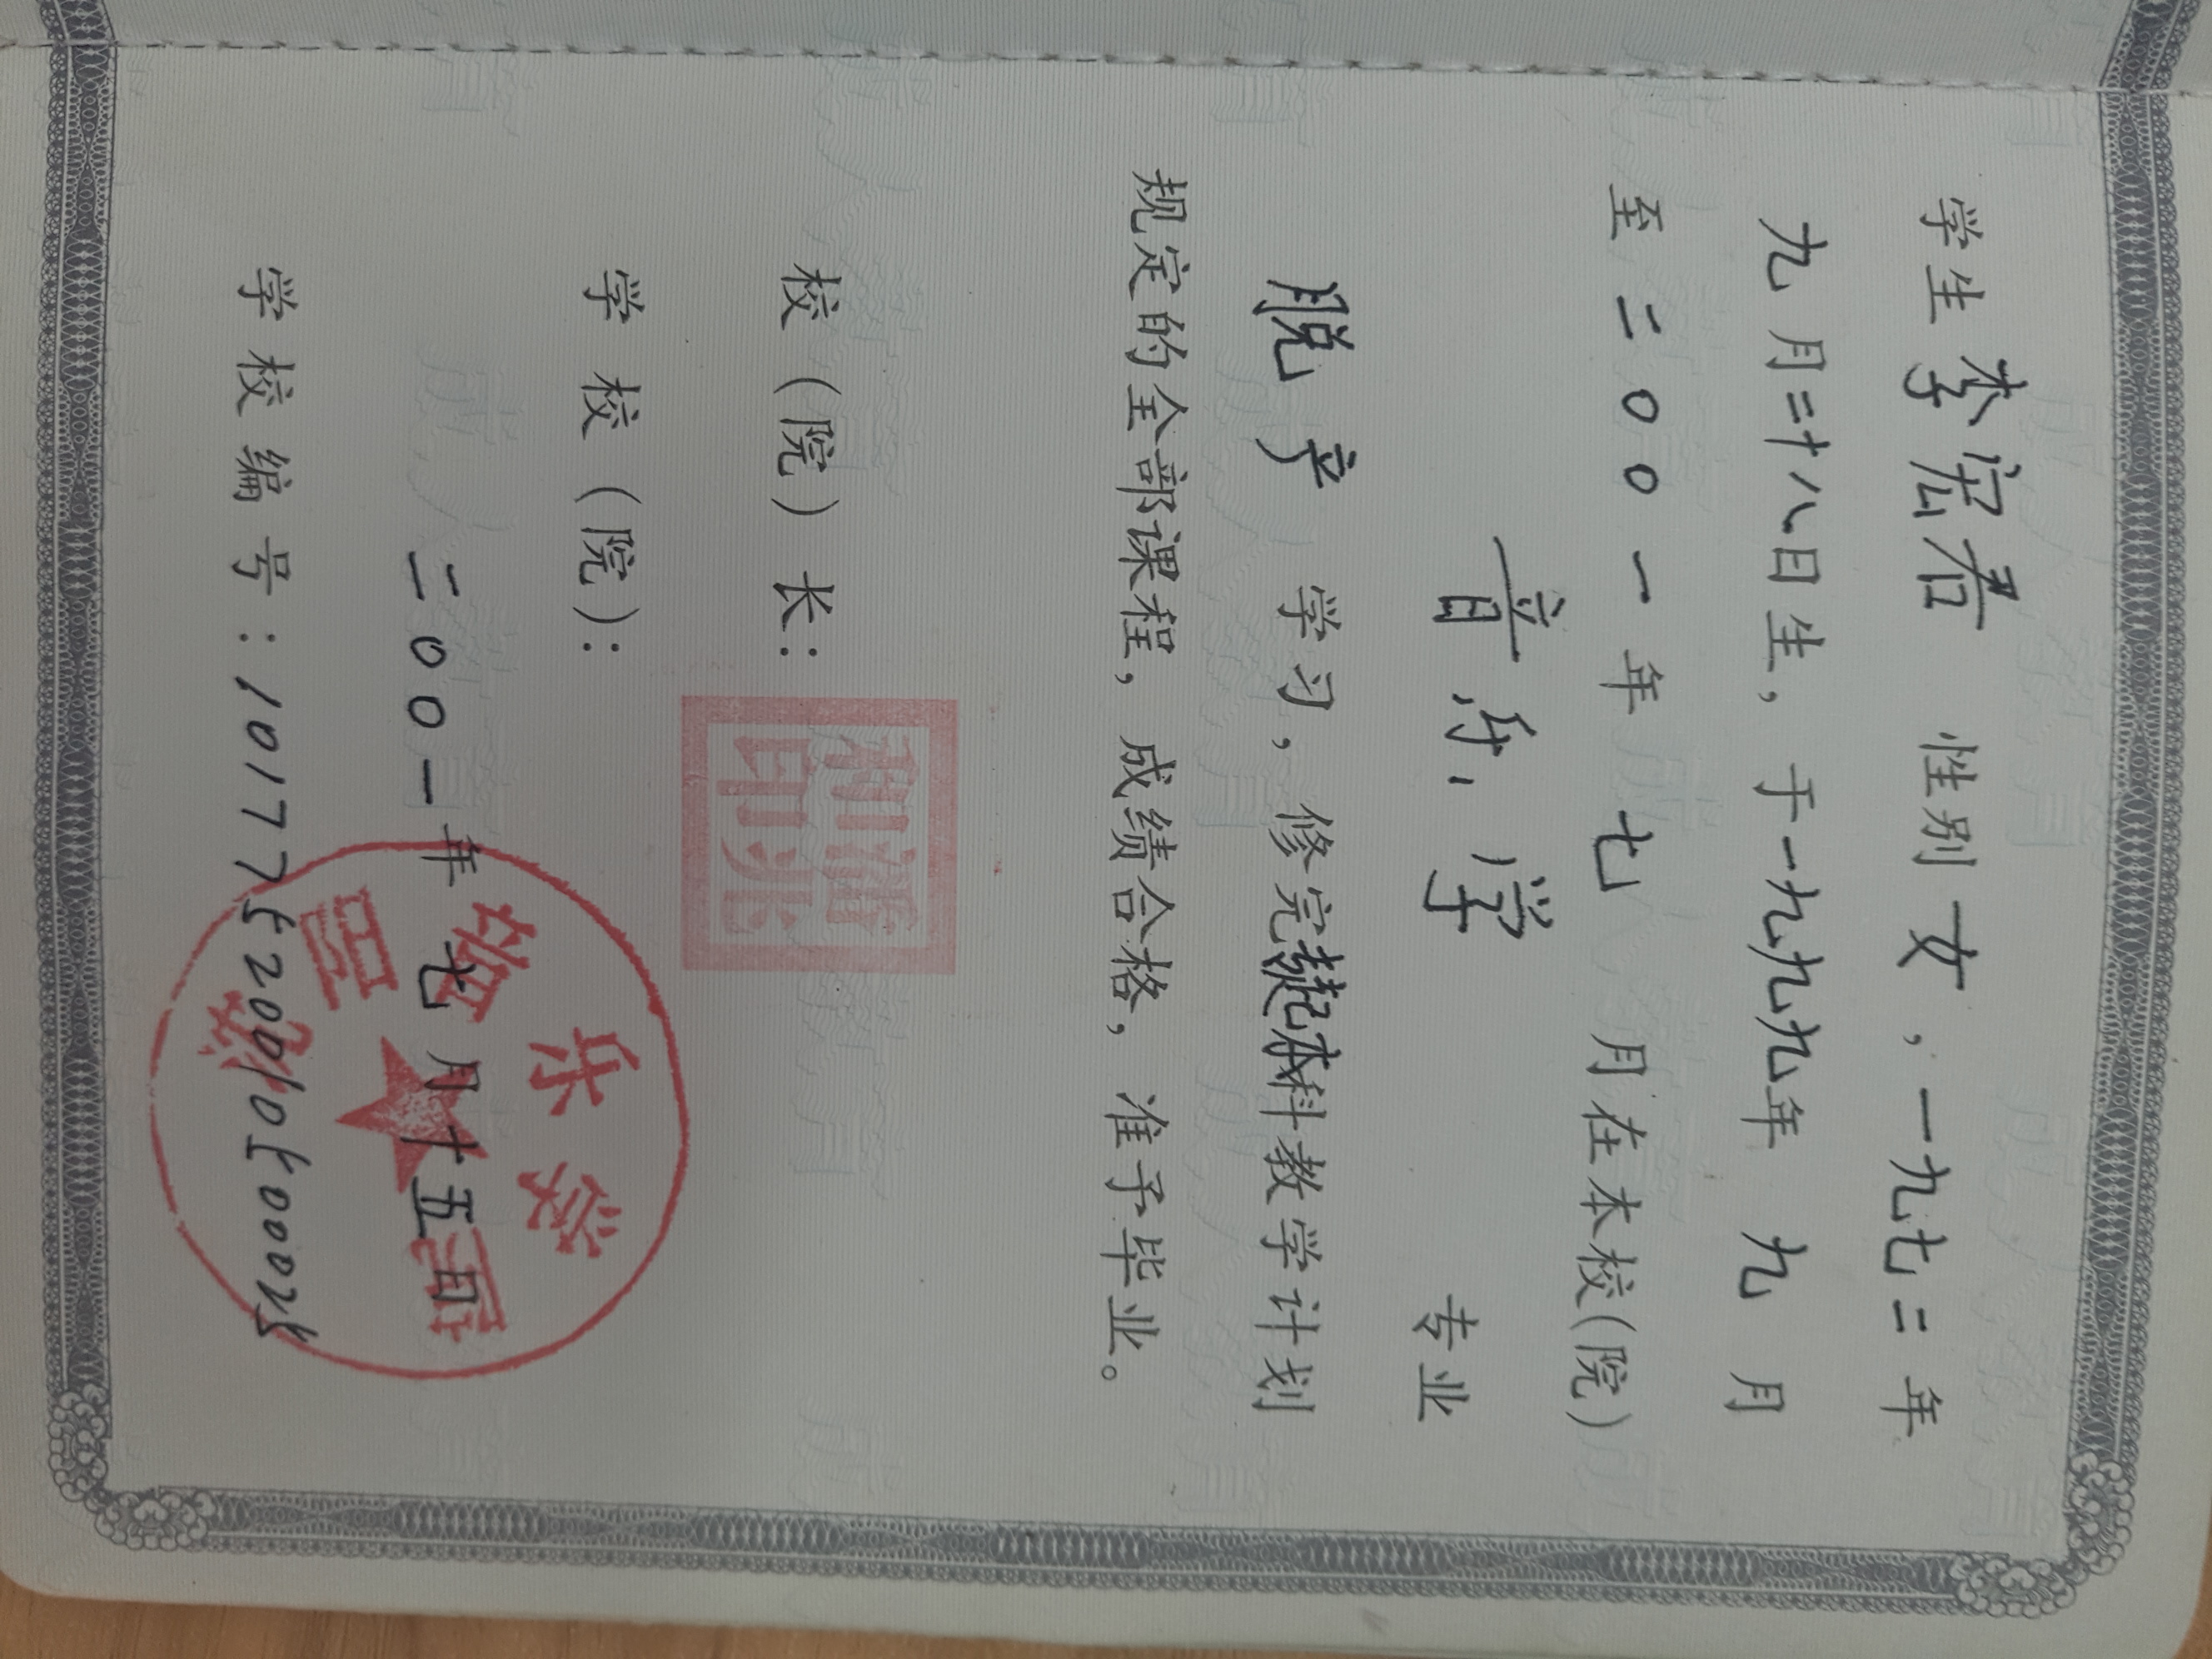 学生李宏君 性别女，一九七二年
九月二十八日生，于一九九九年九月
至二00一年七月在本校(院)
音乐学 专业
脱产 学习，修完专起本科教学计划
规定的全部课程，成绩合格，准予毕业。
校(院)长：
学校(院)：
二00一年七月十五日
学校编号：10177520010500025